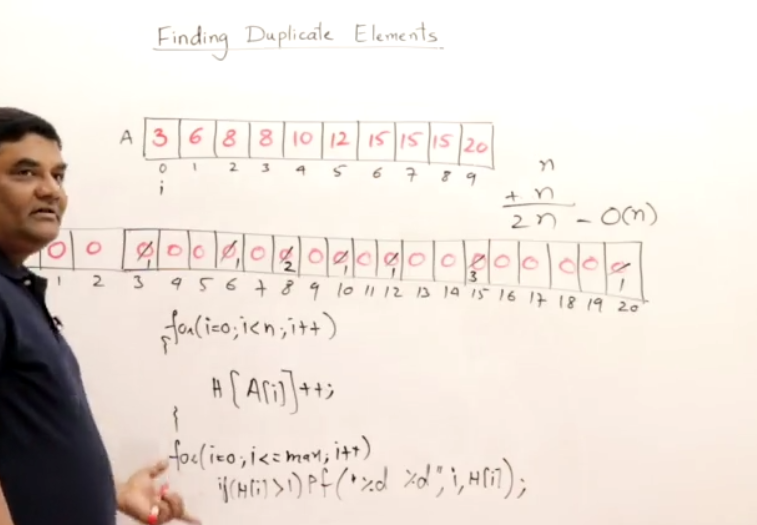 Finding Duplicate Elements
A 3 6 8 8 10 12 15 15 15 20
0 1 2 3 4 5 6 7 8 9
i
n
+ n
2n - O(n)
0 0 0 0 0 0 0 0 0 0 0 0 0 0 0 0 0 0 0 0
1 1 2 1 1 3 1
1 2 3 4 5 6 7 8 9 10 11 12 13 14 15 16 17 18 19 20
for(i=0;i<n;i++)
{
H[A[i]]++;
}
for(i=0;i<=max;i++)
if(H[i]>1)Pf("%d %d",i,H[i]);